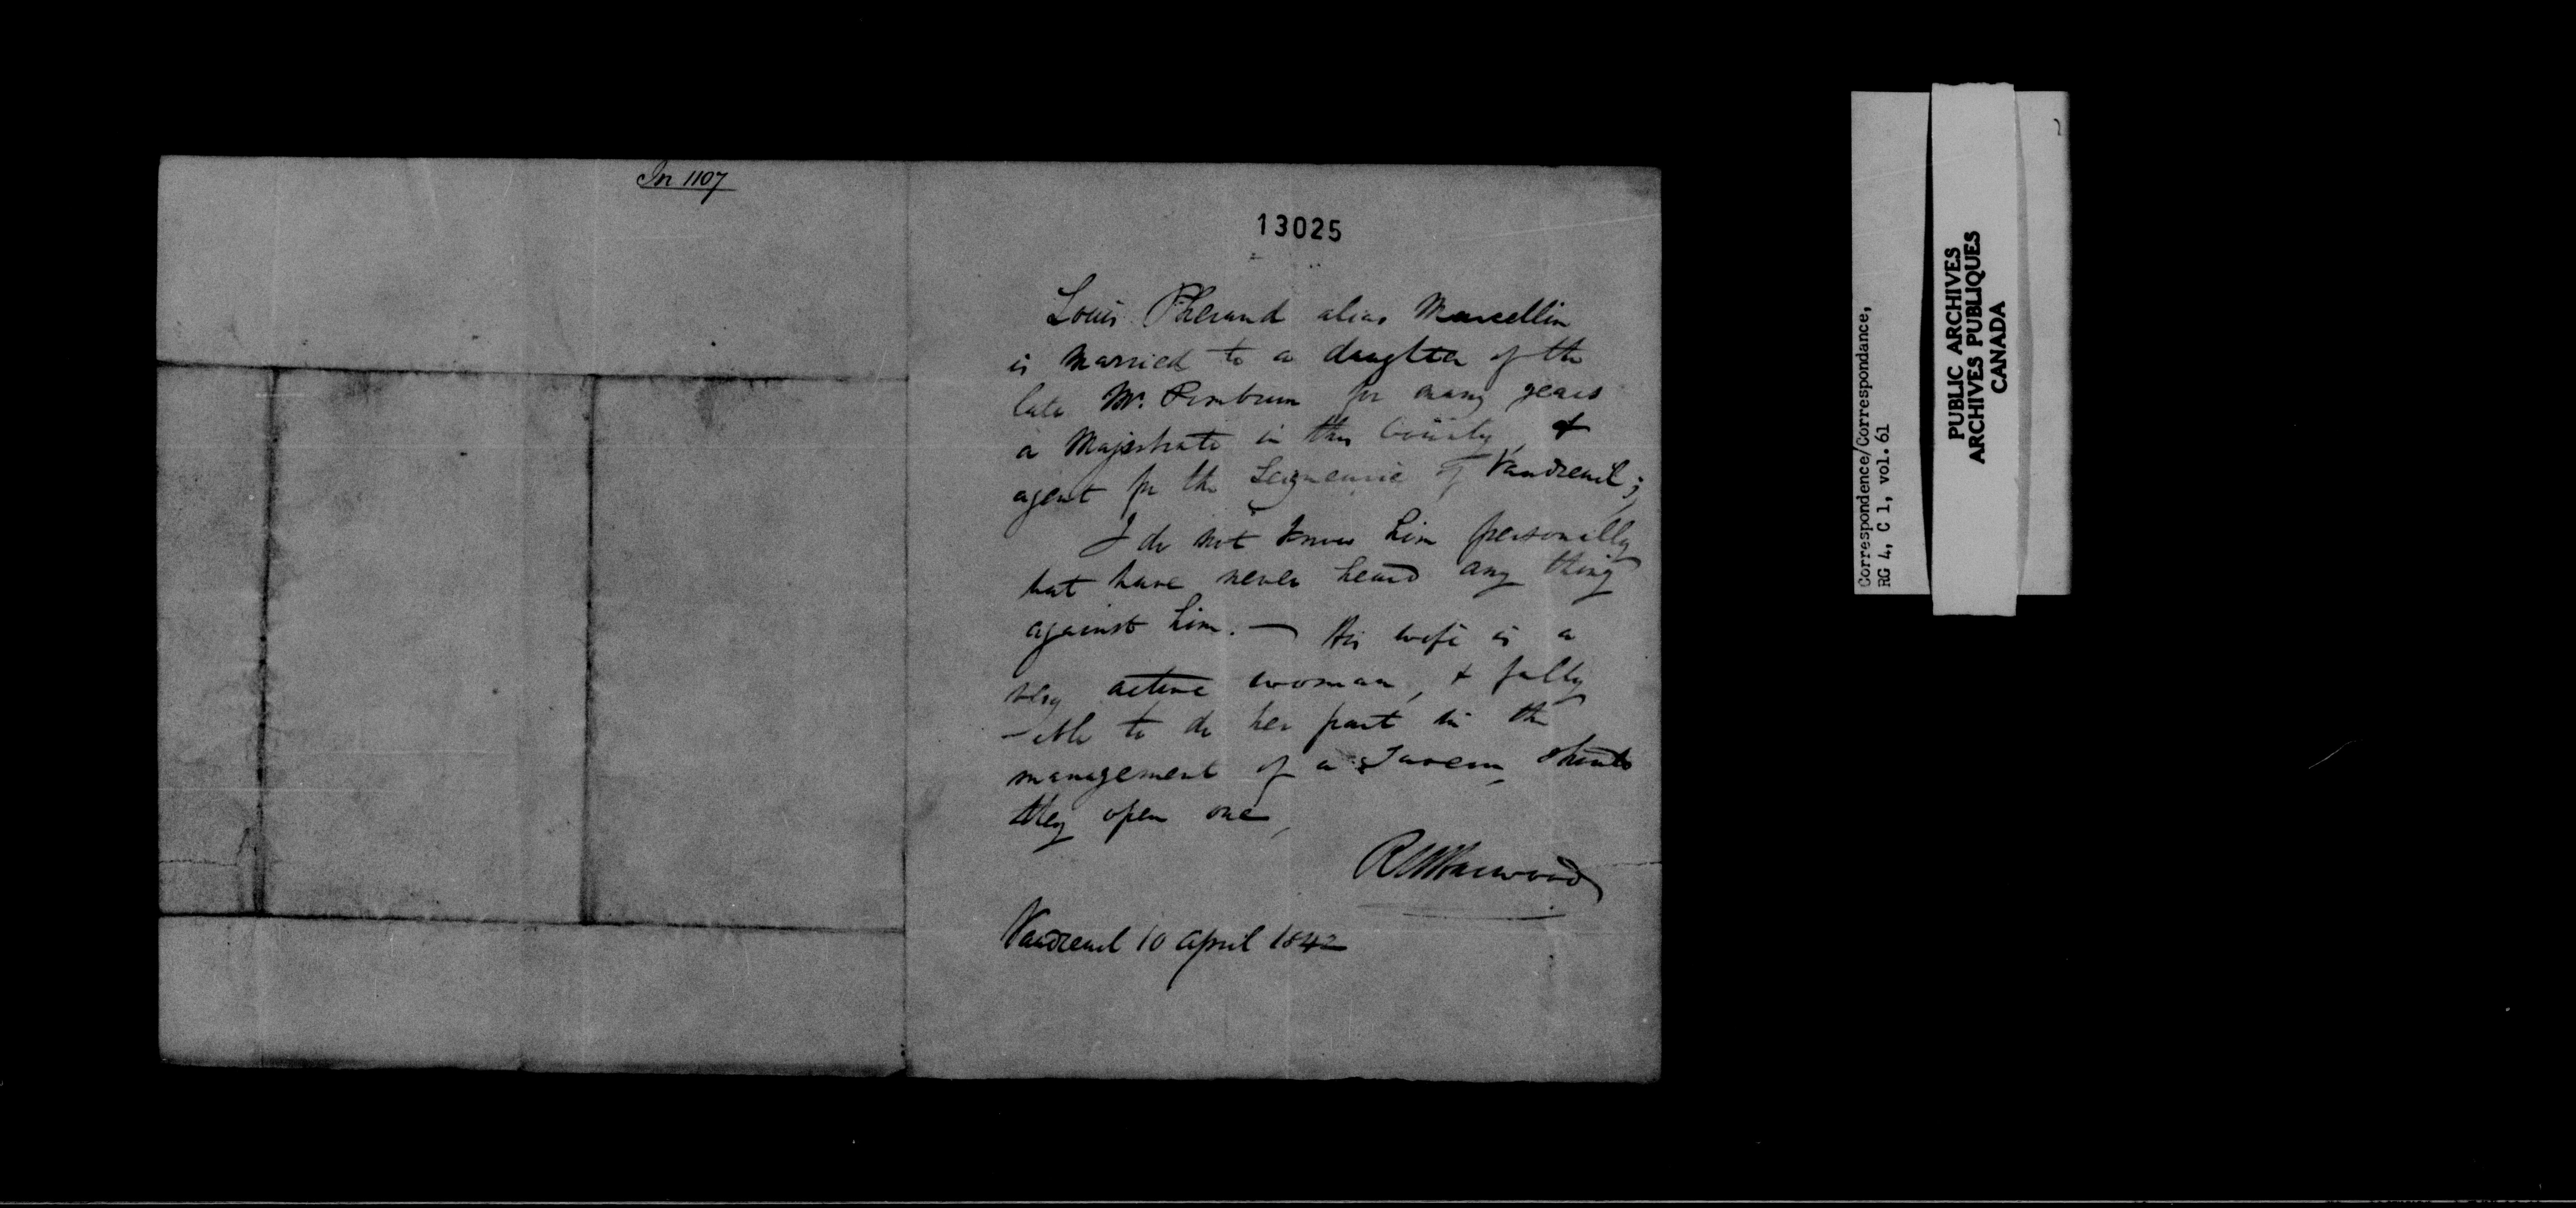 In 1107
13025
Louis Pherand alias Marcellin
is married to a daughter of the
late Mr. for many years
a Majestrate in this County, &
agent for the Seigneurie of Vaudreuil;
I do not know him personally
but have never heard any thing
against him. — His wife is a
very active woman, & fully
able to do her part in the
management of a Tavern, should
they open one,
RWHarwood
Vaudreuil 10 April 1842
Correspondence/Correspondance,
RG 4, C 1, vol. 61
PUBLIC ARCHIVES
ARCHIVES PUBLIQUES
CANADA